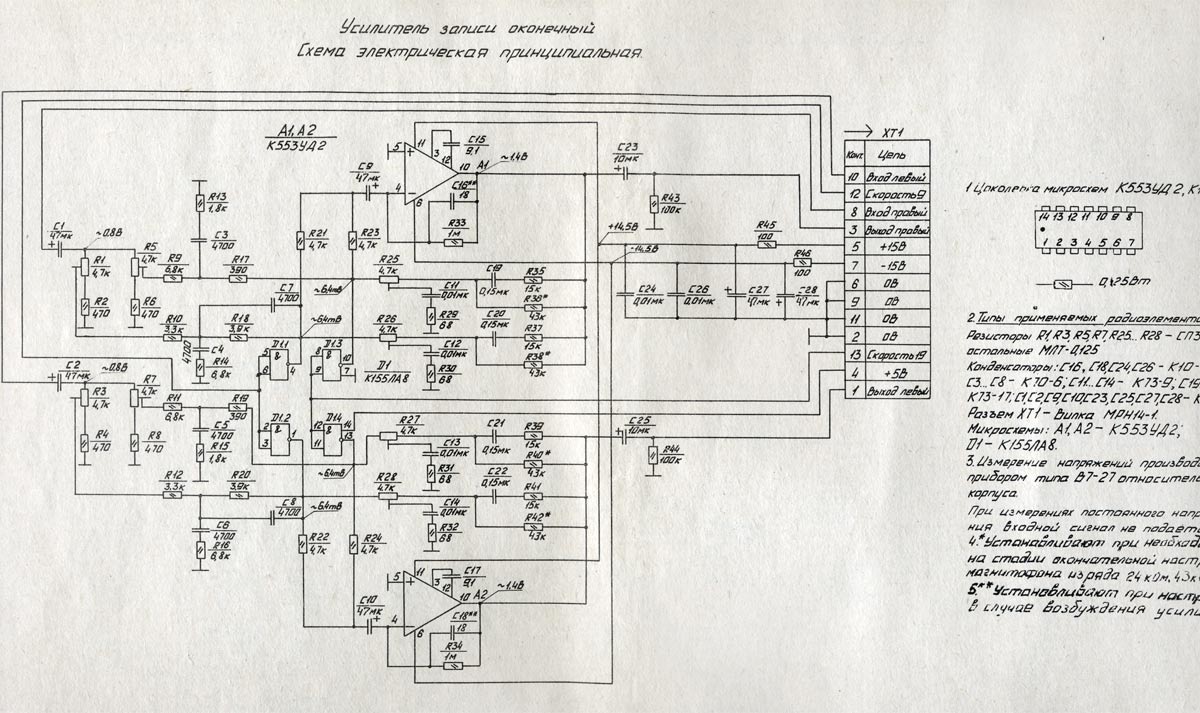 Усилитель записи оконечный
Схема электрическая принципиальная.
А1, А2
К553УД2
5
11
3
12
C15
9,1
10
А1
~1,4В
C9
47мк
4
6
C16**
18
R33
1м
C23
10мк
R43
100к
XT1
Конт.
Цепь
10 Вход левый
12 Скорость 9
8 Вход правый
3 Выход правый
5 +15В
7 -15В
6 0В
9 0В
11 0В
2 0В
13 Скорость 19
4 +5В
1 Выход левый
+14,5В
-14,5В
R45
100
R46
100
C24
0,01мк
C26
0,01мк
C27
47мк
C28
47мк
C1
47мк
~0,8В
R1
4,7к
R2
470
R5
4,7к
R6
470
R9
6,8к
R13
1,8к
C3
4700
R17
390
R21
4,7к
R23
4,7к
C7
4700
R10
3,3к
R18
3,9к
C4
4700
R14
6,8к
~6,4мВ
~6,4мВ
R25
4,7к
C11
0,01мк
R29
68
C19
0,15мк
R35
15к
R36*
43к
R26
4,7к
C12
0,01мк
R30
68
C20
0,15мк
R37
15к
R38*
43к
D1.1
5
6
&
4
D1.3
8
9
&
10
7
D1
К155ЛА8
D1.2
2
3
&
1
D1.4
12
11
&
14
13
C2
47мк
~0,8В
R3
4,7к
R4
470
R7
4,7к
R8
470
R11
6,8к
C5
4700
R15
1,8к
R19
390
R12
3,3к
R20
3,9к
C6
4700
R16
6,8к
C8
4700
~6,4мВ
~6,4мВ
R22
4,7к
R24
4,7к
R27
4,7к
C13
0,01мк
R31
68
C21
0,15мк
R39
15к
R40*
43к
R28
4,7к
C14
0,01мк
R32
68
C22
0,15мк
R41
15к
R42*
43к
C25
10мк
R44
100к
5
11
3
12
C17
9,1
10
А2
~1,4В
C10
47мк
4
6
C18**
18
R34
1м
1. Цоколевка микросхем К553УД2, К1
14 13 12 11 10 9 8
1 2 3 4 5 6 7
0,125Вт
2. Типы применяемых радиоэлемента
Резисторы R1, R3, R5, R7, R25... R28 – СП3
остальные МЛТ-0,125
Конденсаторы: C16, C18, C24, C26 – К10-
C3...C8 – К70-6; C11...C14 – К73-9; C19
К73-17; C1, C2, C9, C10, C23, C25, C27, C28 – К
Разъем XT1 – Вилка МРН14-1.
Микросхемы: А1, А2 – К553УД2;
D1 – К155ЛА8.
3. Измерение напряжений производ
прибором типа В7-27 относител
корпуса.
При измерениях постоянного напр
ния входной сигнал не подаетс
4.* Устанавливают при необход
на стадии окончательной настр
магнитофона из ряда 24 кОм, 43к
5.** Устанавливают при настр
в случае возбуждения усили